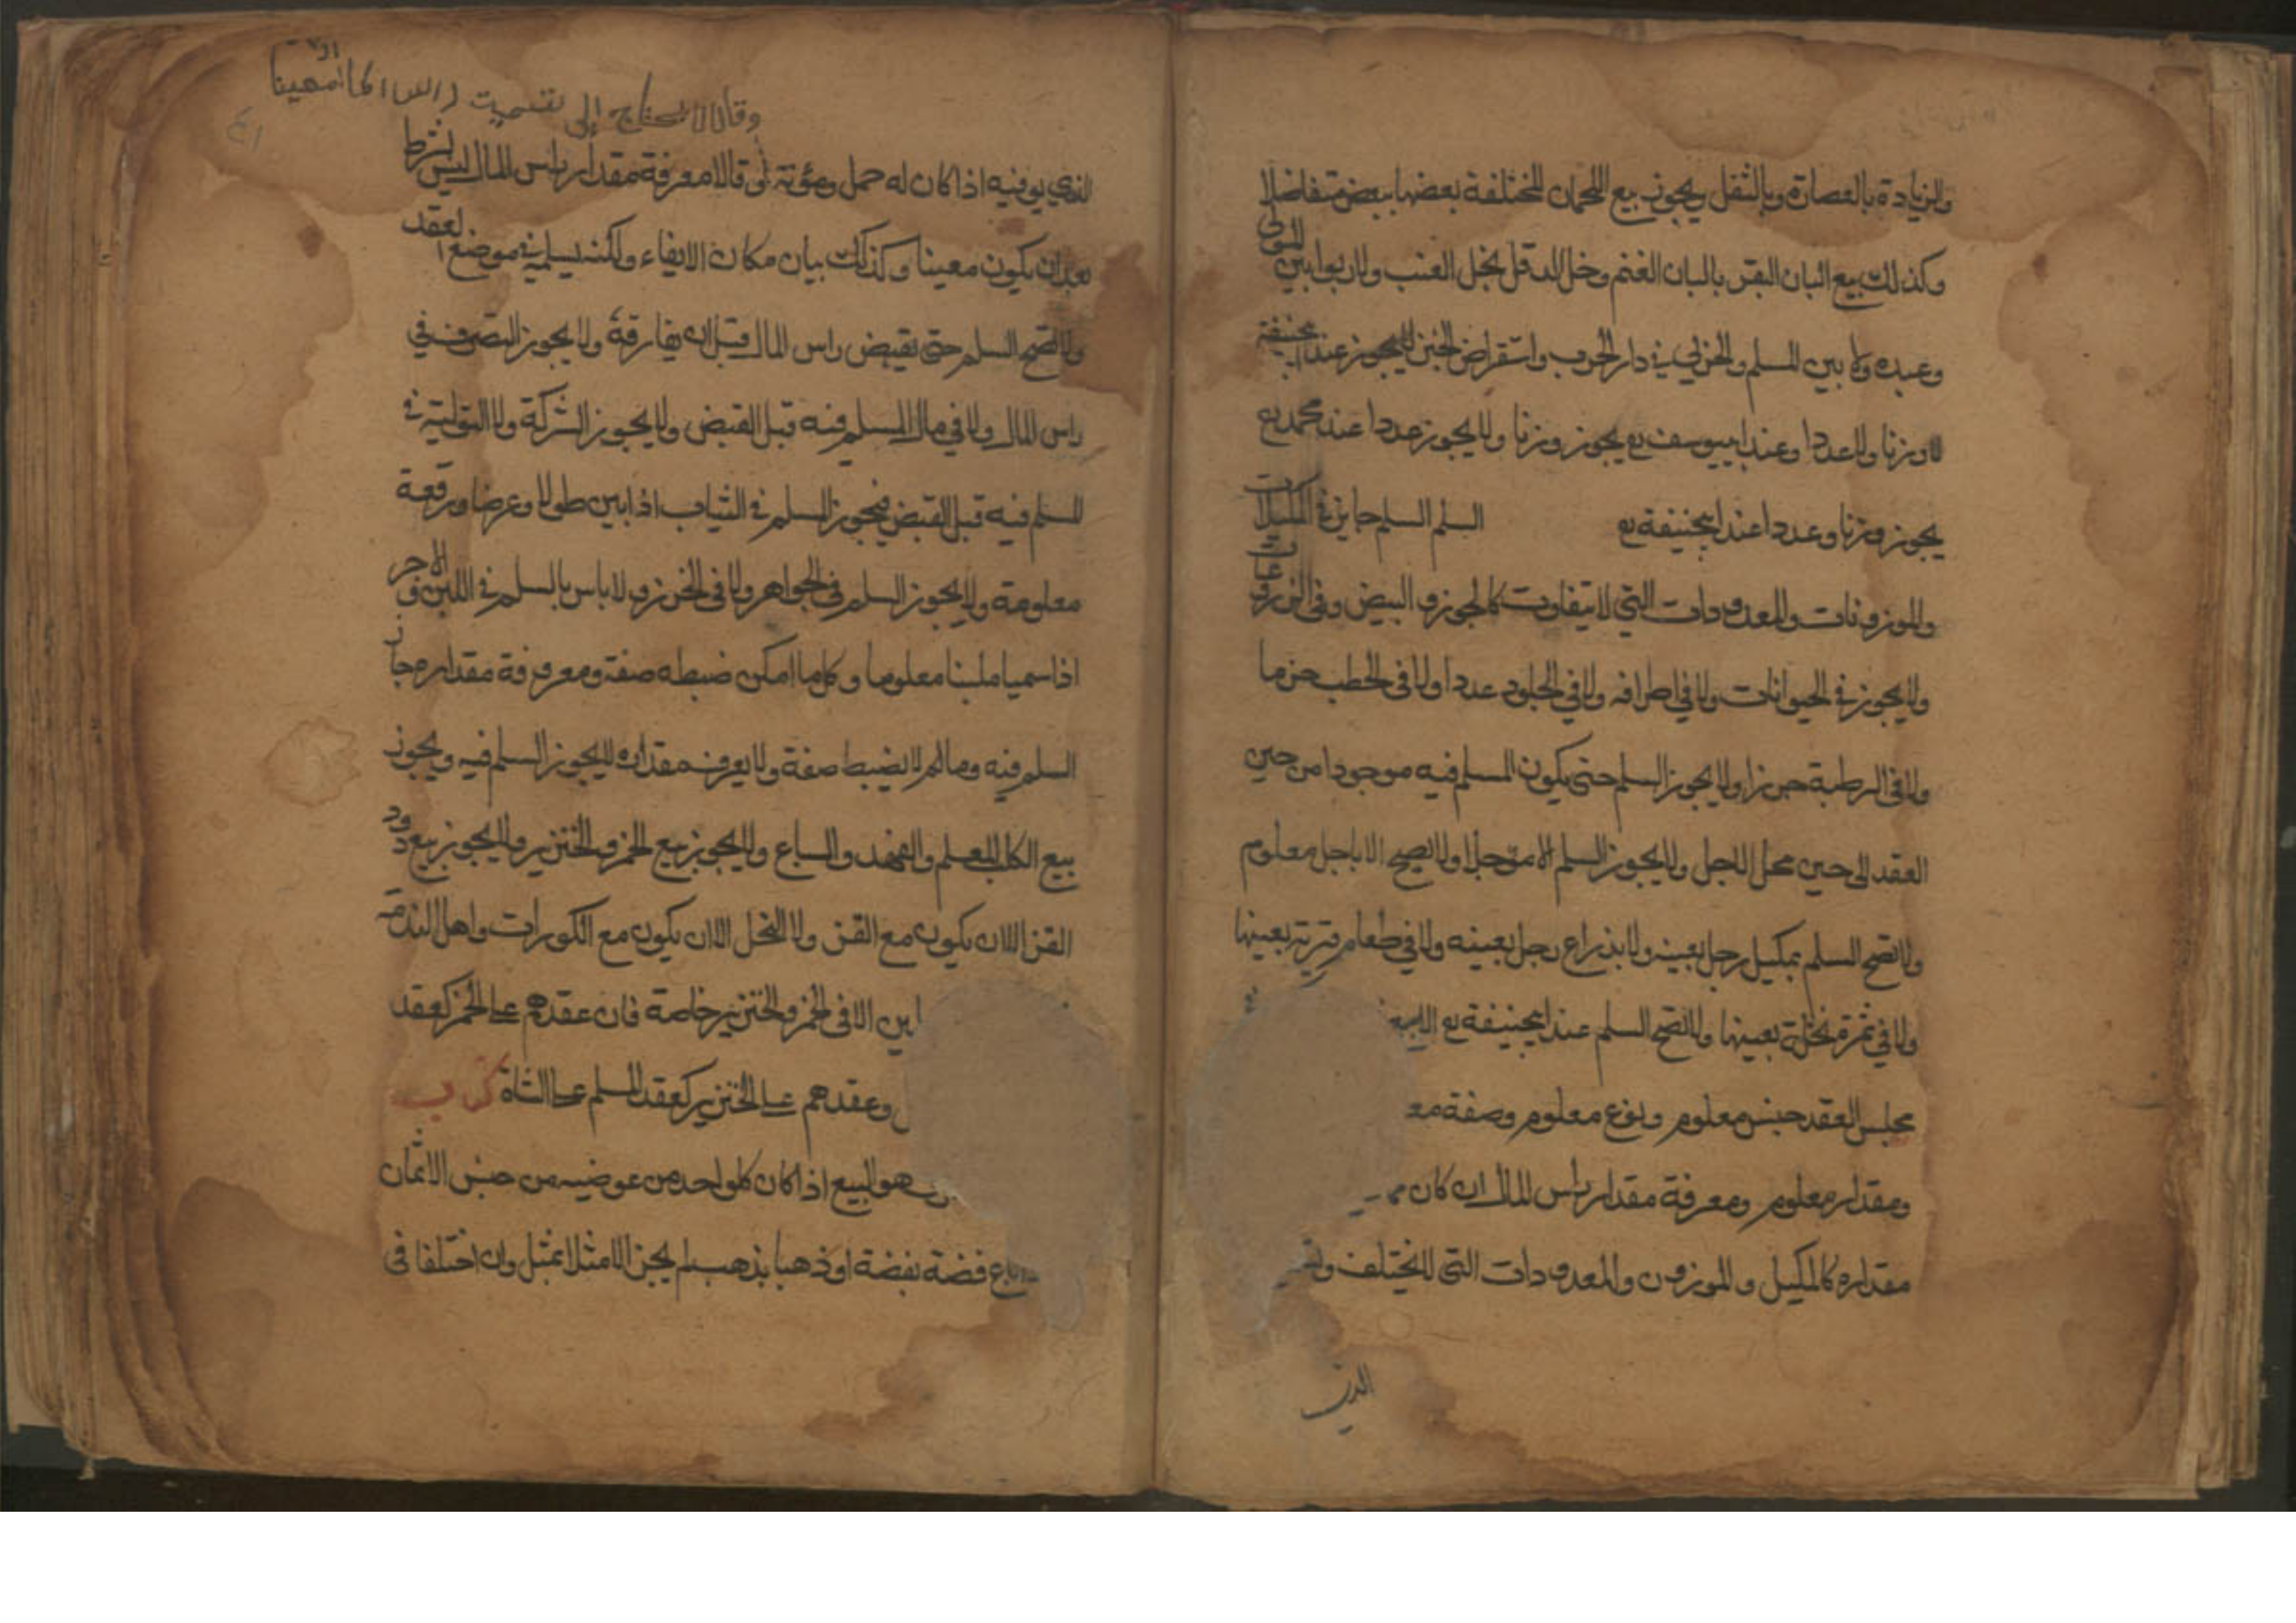 والزيادة بالعصارة وبالثقل ويجوز بيع اللحمان المختلفة بعضها ببعض متفاضلا
وكذلك بيع البان البقر بالبان الغنم وخل الدقل بخل العنب ولا ربوا بين المولى
وعبده ولا بين المسلم والحربي في دار الحرب واستقراض الخبز لا يجوز عند ابيحنيفة
لا وزنا ولا عددا وعند ابييوسف يجوز وزنا ولا يجوز عددا عند محمد
يجوز وزنا وعددا عند ابيحنيفة السلم السلم جايز في المكيلات
والموزونات والمعدودات التي لا يتفاوت كالجوز والبيض وفي المزروعات
ولا يجوز في الحيوانات ولا في اطرافه ولا في الجلود عددا ولا في الحطب حزما
ولا في الرطبة جرزا ولا يجوز السلم حتى يكون المسلم فيه موجودا من حين
العقد الى حين محل الاجل ولا يجوز السلم الا مؤجلا ولا يصح الا باجل معلوم
ولا تصح السلم بمكيل رجل بعينه ولا بذراع رجل بعينه ولا في طعام قرية بعينها
ولا في ثمرة نخلة بعينها ولا تصح السلم عند ابيحنيفة
مجلس العقد جنس معلوم ونوع معلوم وصفة
ومقدار معلوم ومعرفة مقدار راس المال ان كان
مقداره كالمكيل والموزون والمعدودات التي لا يختلف
الذي
وقالا لا يحتاج إلى تسميت راس المال
الذي يوفيه اذا كان له حمل ومؤنة وقالا معرفة مقدار راس المال ليس بشرط
بعد ان يكون معينا وكذلك بيان مكان الايفاء ولكنه يسلمه في موضع العقد
ولا تصح السلم حتى يقبض راس المال قبل ان يفارقه ولا يجوز التصرف في
راس المال ولا في مال المسلم فيه قبل القبض ولا يجوز الشركة ولا التولية في
المسلم فيه قبل القبض فيجوز السلم في الثياب اذا بين طولا وعرضا ورقعة
معلومة ولا يجوز السلم في الجواهر ولا في الخرز ولا باس بالسلم في اللبن والاجر
اذا سميا ملبنا معلوما وكلما امكن ضبطه صفة ومعرفة مقداره جاز
السلم فيه وما لم لا يضبط صفة ولا يعرف مقداره لا يجوز السلم فيه ويجوز
بيع الكلب المعلم والفهد والسباع ولا يجوز بيع الخمر والخنزير ولا يجوز بيع دود
القز الا ان يكون مع القز ولا النحل الا ان يكون مع الكورات واهل الذمة
الا في الخمر والخنزير خاصة فان عقدهم على الخمر كعقد
وعقدهم على الخنزير كعقد المسلم على الشاة
هو البيع اذا كان كل واحد من عوضيه من جنس الاثمان
باع فضة بفضة او ذهبا بذهب لم يجز الا مثلا بمثل وان اختلفا في